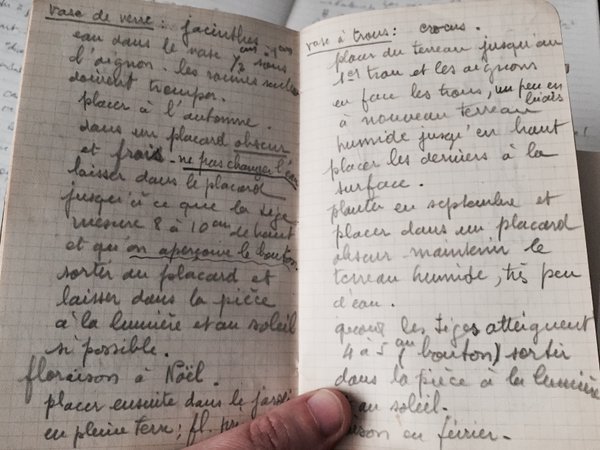 vase de verre : jacinthes
eau dans le vase 1/2 cm sous
l'oignon. les racines seules
doivent tremper.
placer à l'automne.
dans un placard obscur
et frais. ne pas changer l'eau
laisser dans le placard
jusqu'à ce que la tige
mesure 8 à 10 cm de haut
et qu'on aperçoive le bouton.
sortir du placard et
laisser dans la pièce
à la lumière et au soleil
si possible.
floraison à Noël.
placer ensuite dans le jardin
en pleine terre ; fl.
vase à trous : crocus.
placer du terreau jusqu'au
1er trou et les oignons
en face les trous, un peu en
biais
à nouveau terreau
humide jusqu'en haut
placer les derniers à la
surface.
planter en septembre et
placer dans un placard
obscur maintenir le
terreau humide, très peu
d'eau.
quand les tiges atteignent
4 à 5 cm (bouton) sortir
dans la pièce à la lumière
au soleil.
en février.